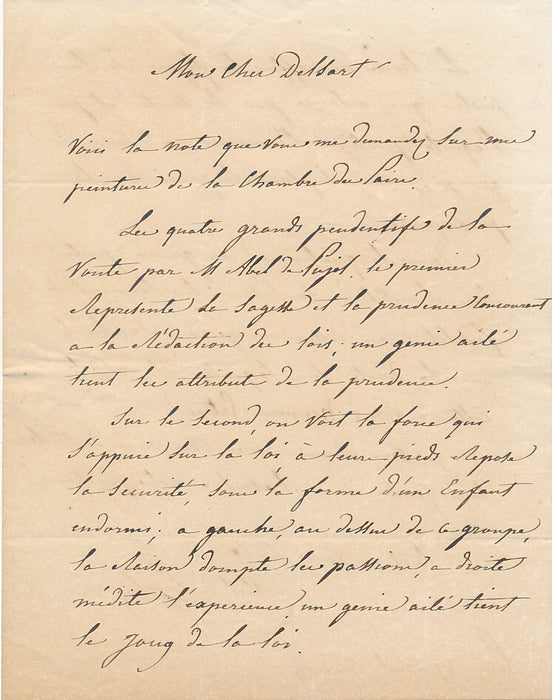 Mon cher Delsart
Voici la note que vous me demandez sur mes
peintures de la Chambre des Pairs.
Les quatre grands pendentifs de la
Voute par M Abel de Pujol. le premier
Représente La Sagesse et la prudence Concourant
a la Rédaction des lois; un genie ailé
tient les attributs de la prudence.
Sur le second, on voit la force qui
s'appuie sur la loi à leurs pieds Repose
la Securité, sous la forme d'un Enfant
endormi; a gauche, au dessus de ce groupe,
la Raison dompte les passions, a droite
médite l'experience, un genie ailé tient
le Joug de la loi.